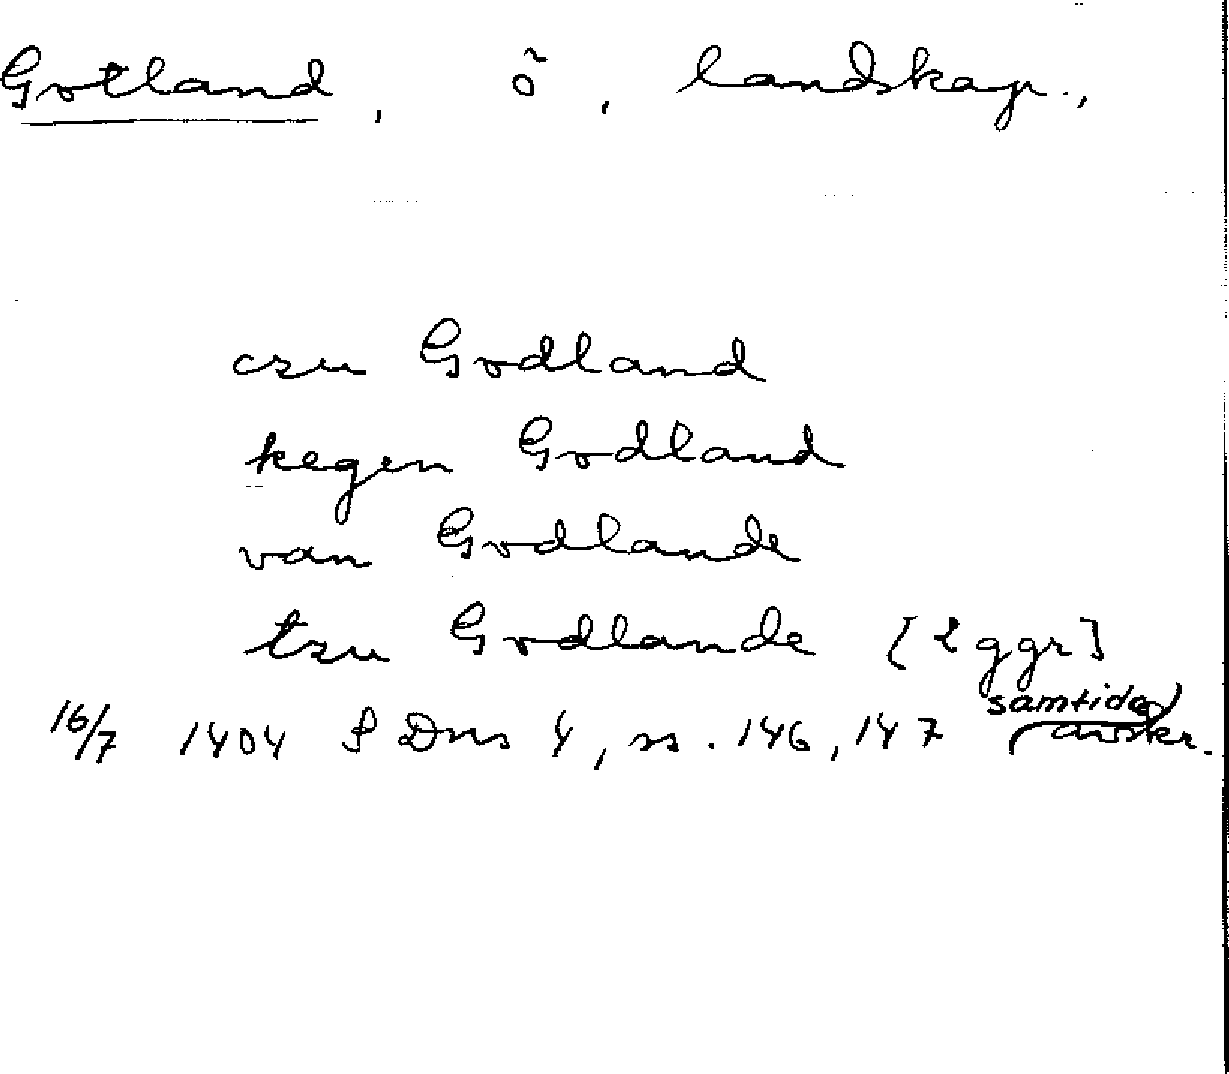 Gotland, ö, landskap.,
czu Godland
kegen Godland
van Godlande
tzu Godlande [2 ggr]
16/7 1404 SDns 4, ss. 146, 147 (samtida avskr.)